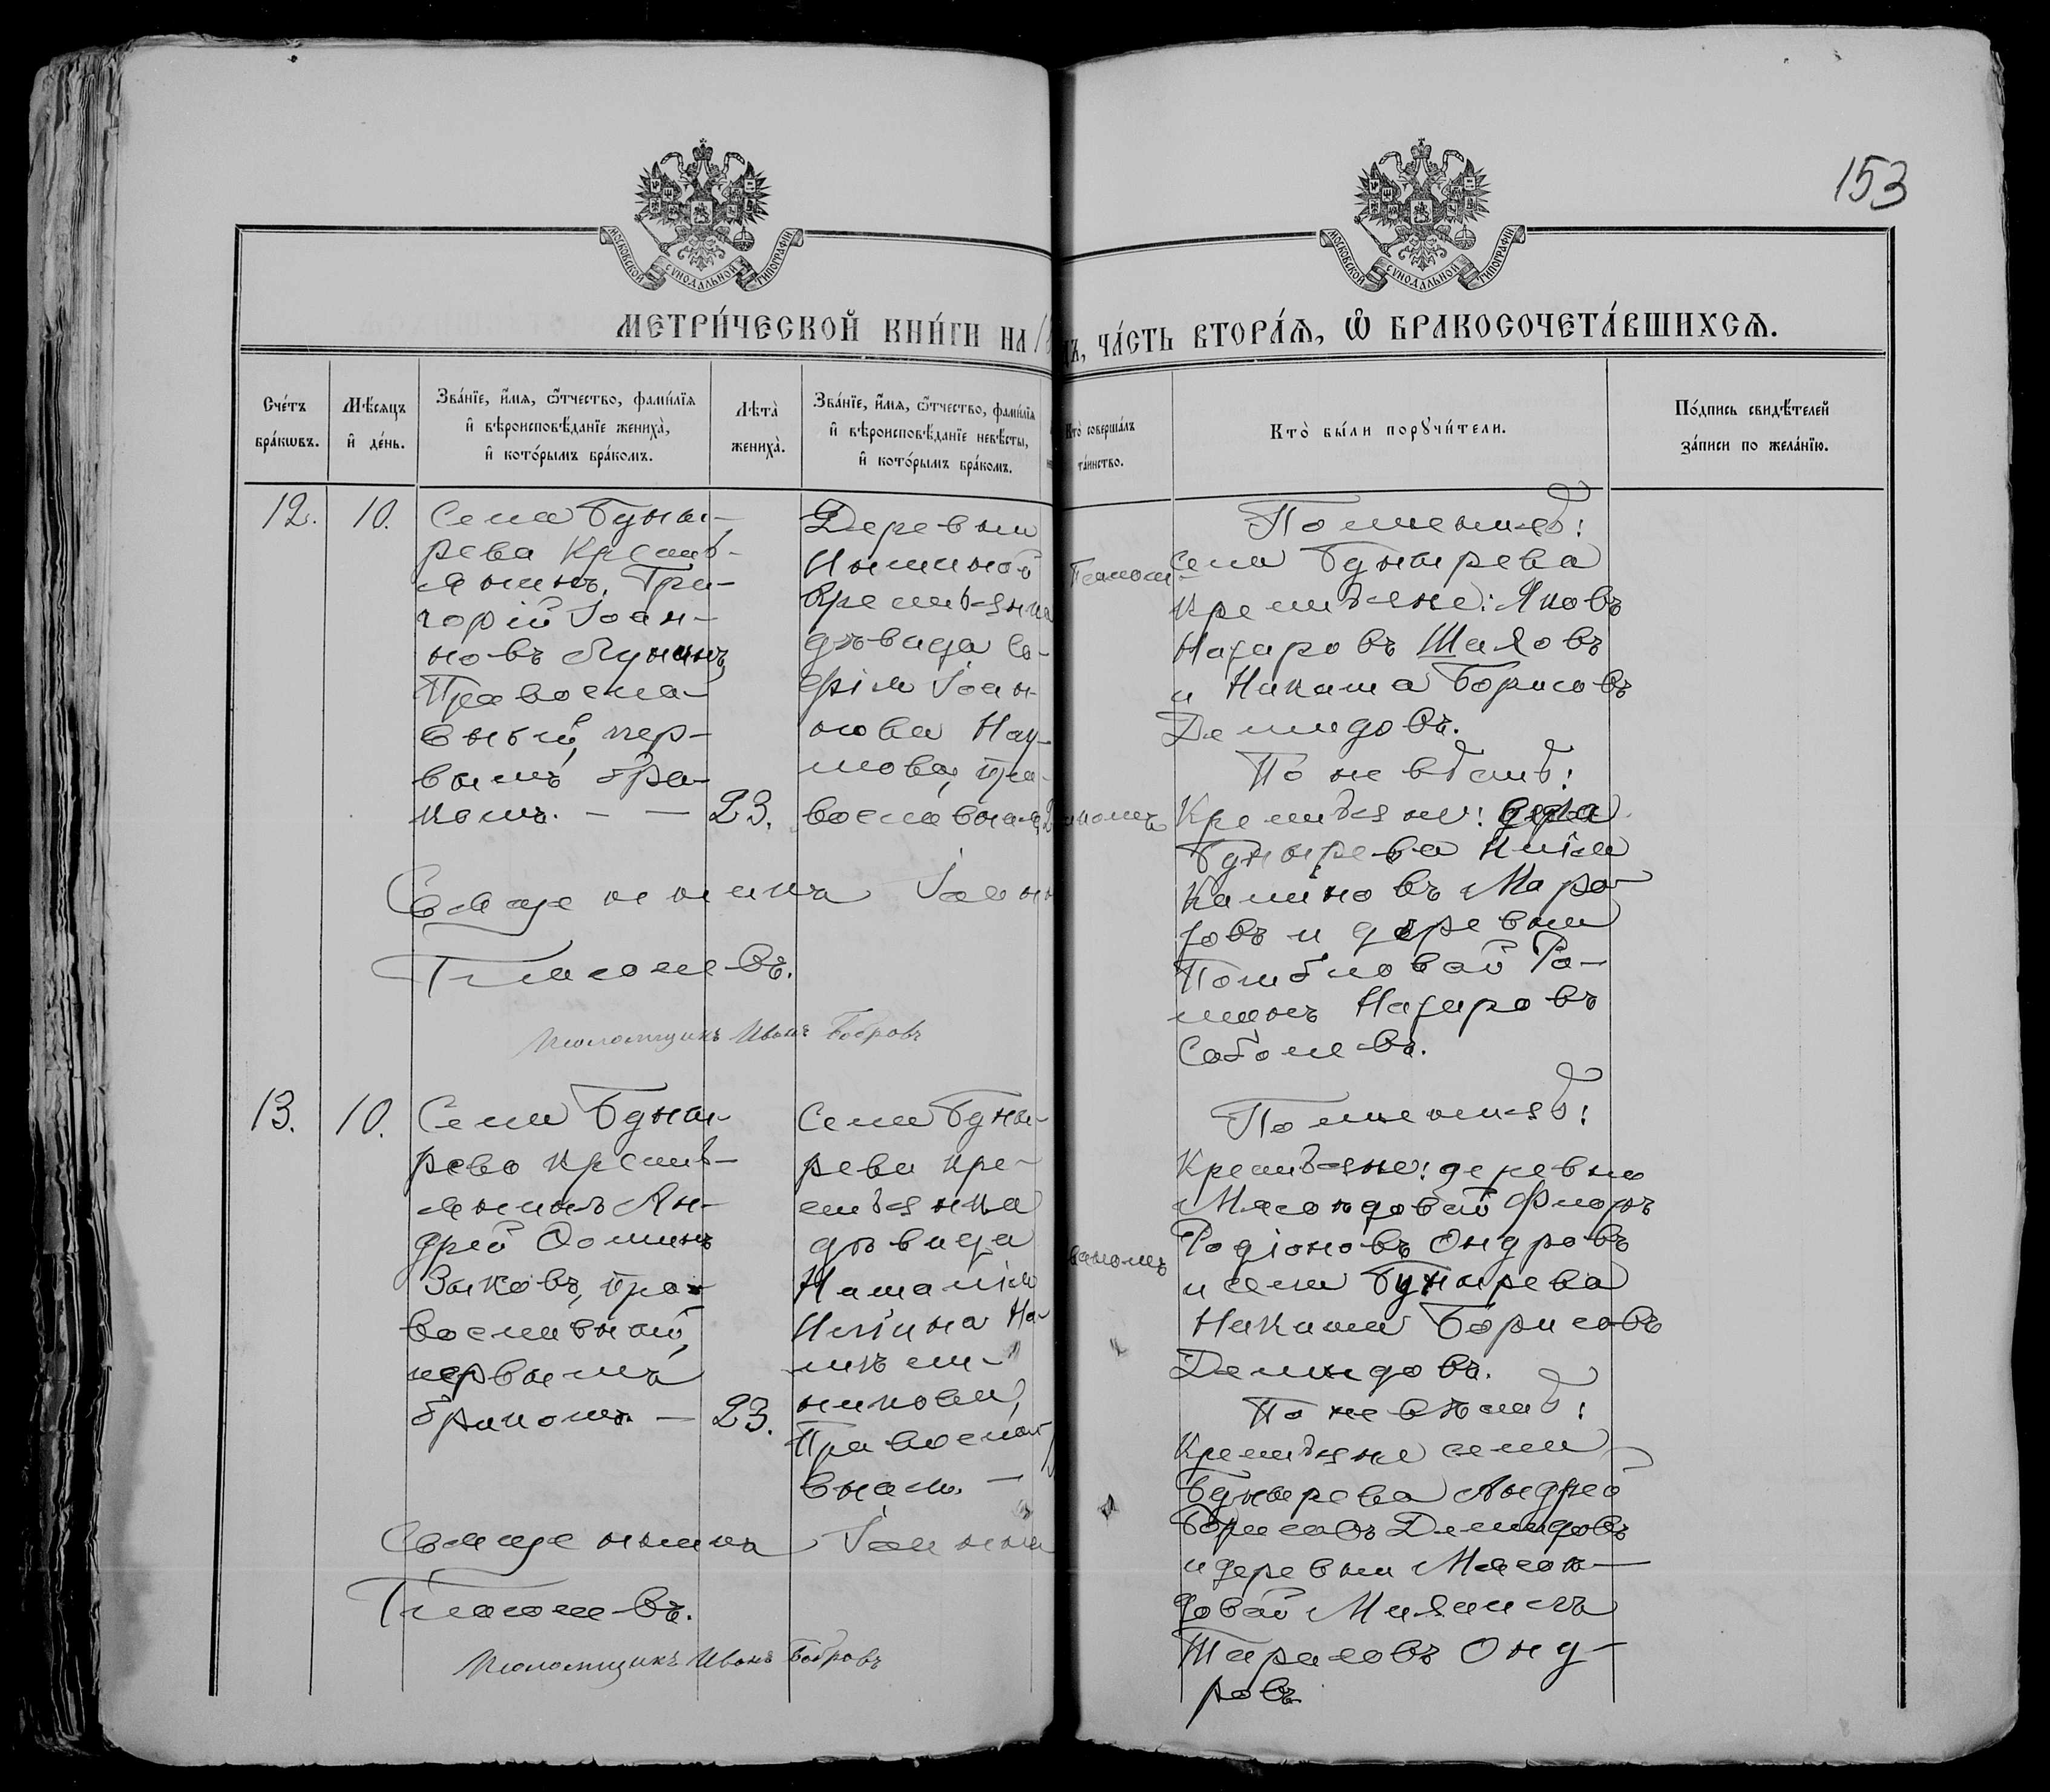 153
МОСКОВСКОЙ СѴНОДАЛЬНОЙ ТИПОГРАФІИ
МОСКОВСКОЙ СѴНОДАЛЬНОЙ ТИПОГРАФІИ
МЕТРИ́ЧЕСКОЙ КНИ́ГИ НА
ЧА́СТЬ ВТОРА́Ѧ, Ѡ҆ БРАКОСОЧЕТА́ВШИХСѦ.
Сче́тъ
бра́кѡвъ.
Мѣ́сѧцъ
и҆ де́нь.
Зва́нїе, и҆́мѧ, ѻ҆́тчество, фамі́лїѧ
и҆ вѣроисповѣ́данїе жениха̀,
и҆ кото́рымъ бра́комъ.
Лѣта̀
жениха̀.
Зва́нїе, и҆́мѧ, ѻ҆́тчество, фамі́лїѧ
и҆ вѣроисповѣ́данїе невѣ́сты,
и҆ кото́рымъ бра́комъ.
Кто̀ соверша́лъ
та́инство.
Кто̀ бы́ли порꙋчи́тели.
По́дпись свидѣ́телей
за́писи по жела́нїю.
12.
10.
Села Буны-
рева Кресть-
янинъ Гри-
горій Іоан-
новъ Лунинъ,
Правосла-
вный, пер-
вымъ бра-
комъ. – –
23.
Деревни
Крестьянка
дѣвица Со-
фія Іоан-
нова Нау-
мова, пра-
вославная,
По женихѣ:
села Бунырева
крестьяне: Яковъ
Назаровъ Шаховъ
и Никита Борисовъ
Демидовъ.
По невѣстѣ:
Крестьяне: села
Бунырева Илія
Ро-
манъ Назаровъ
Соболевъ.
Священникъ Іоаннъ
Глаголевъ.
Псаломщикъ Иванъ Бобровъ
13.
10.
Села Буны-
рева Кресть-
янинъ Ан-
дрей Ѳоминъ
Зыковъ, пра-
вославный,
первымъ
бракомъ. –
23.
Села Буны-
рева кре-
стьянка
дѣвица
Наталія
Иліина
Правосла-
вная. –
По женихѣ:
Крестьяне: деревни
Флоръ
Родіоновъ Ондровъ
и села Бунырева
Никита Борисовъ
Демидовъ.
По невѣстѣ:
Крестьяне села
Бунырева Андрей
Борисовъ Демидовъ
и деревни
Михаилъ
Тарасовъ Онд-
ровъ.
Священникъ Іоаннъ
Глаголевъ.
Псаломщикъ Иванъ Бобровъ